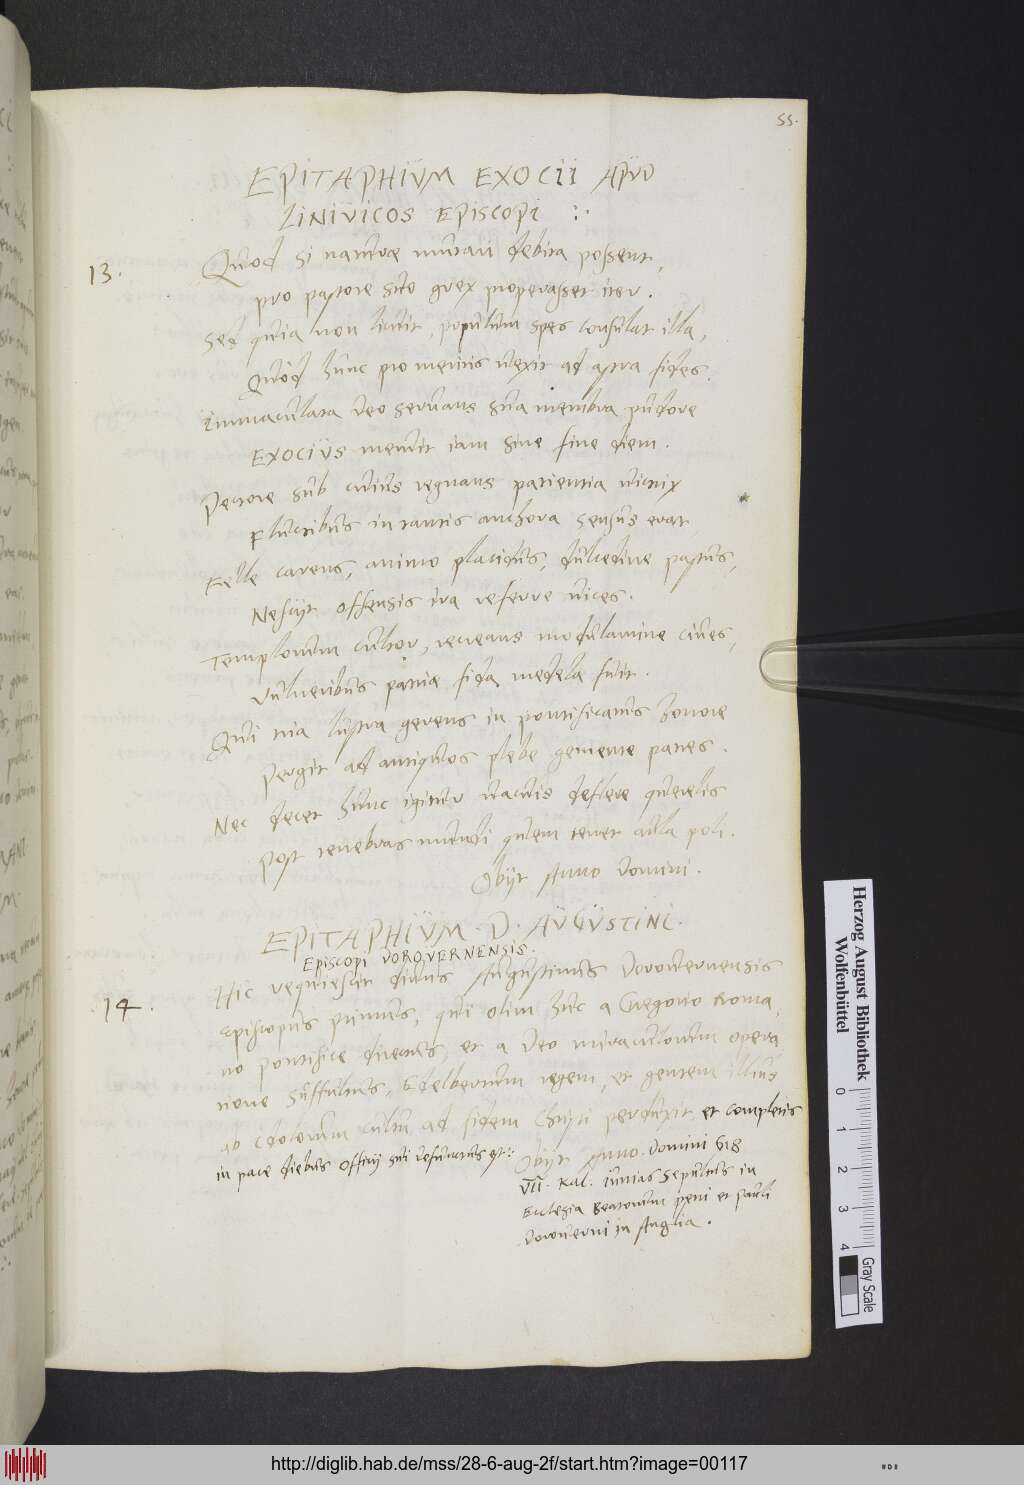 55.
EPITAPHIUM EXOCII APUD
LINIVICOS EPISCOPI :·
13.
Quod si naturae mutari debita possent,
pro pastore suo grex properasset iter.
Sed quia non licuit, populum spes consulat illa,
Quòd hunc pro meritis uexit ad astra fides.
Immaculata deo seruans sua membra pudore
EXOCIUS meruit iam sine fine diem.
Pectore sub cuius regnans patientia uictrix
Fluctibus in tantis anchora sensus erat
Felle carens, animo placidus, dulcedine pastus,
Nescijt offensis ira referre uices.
Templorum cultor, recreans modulamine ciues,
Vulneribus patriae fida medela fuit.
Qui tria lustra gerens in pontificatus honore
Pergit ad antiquos plebe gemente patres.
Nec decet hunc igitur uacuis deflere querelis
Post tenebras mundi quem tenet aula poli.
Obijt Anno Domini.
EPITAPHIUM. D. AUGUSTINI.
EPISCOPI DOROVERNENSIS.
14.
Hic requiescit diuus Augustinus Dorouernensis
Episcopus primus, qui olim huc a Gregorio Roma,
no pontifice directus, et a Deo miraculorum opera
tione suffultus, Edelbertum regem, et gentem illius
ab Idolorum cultu ad fidem Christi perduxit, et completis
in pace diebus officij sui defunctus est :·
Obijt Anno. Domini 618
VII. Kal. iunias sepultus in
Ecclesia Beatorum petri et pauli
Dorouerni in Anglia.
Herzog August Bibliothek
Wolfenbüttel
0 1 2 3 4
Gray Scale
http://diglib.hab.de/mss/28-6-aug-2f/start.htm?image=00117